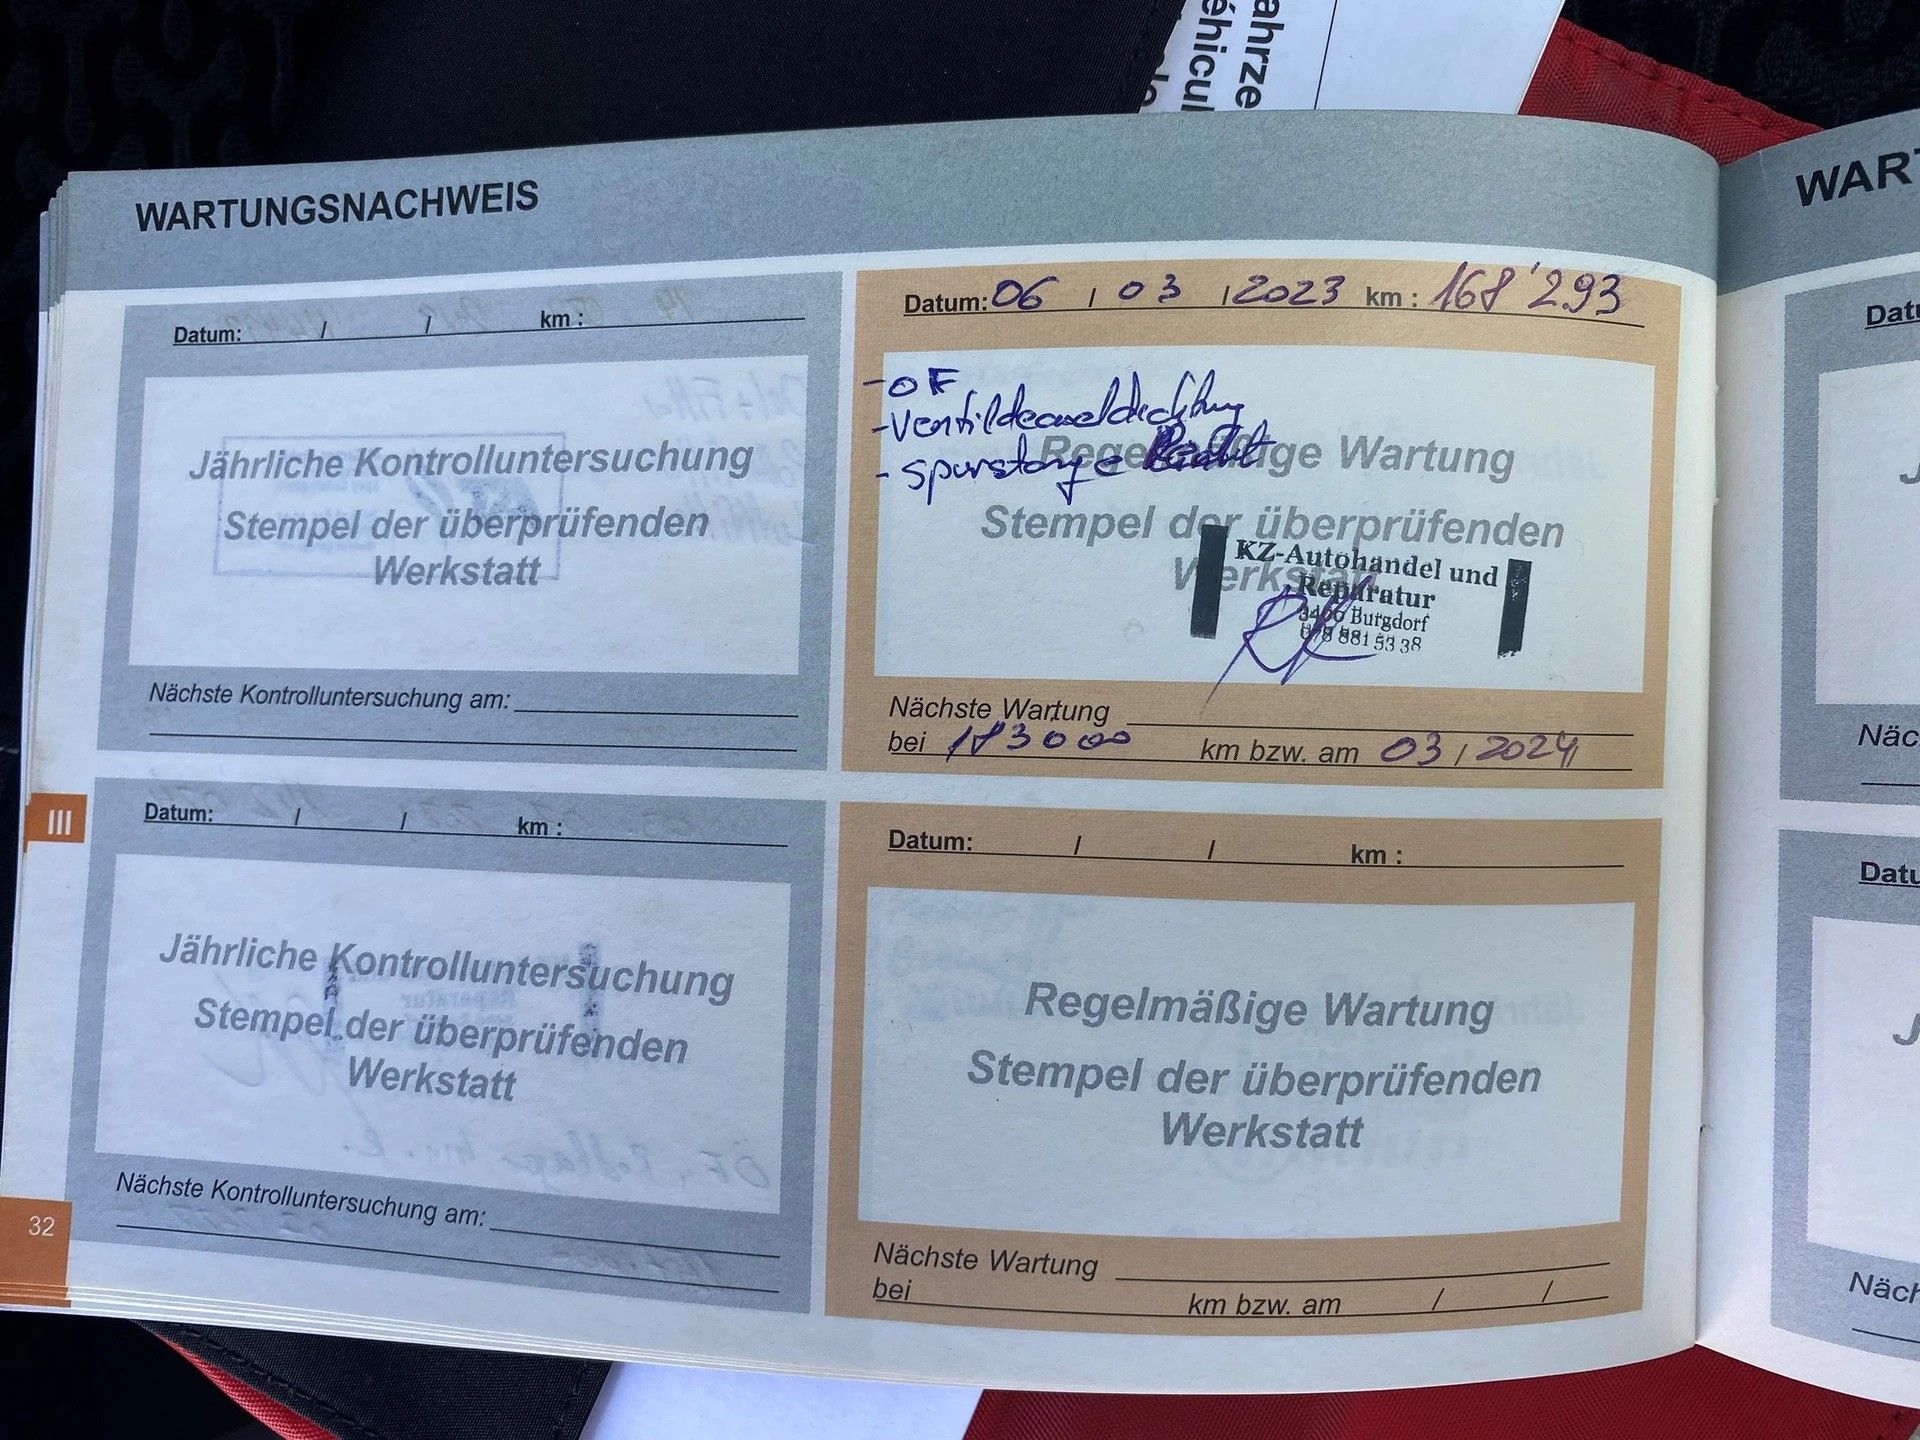 ahrze
éhicul
WARTUNGSNACHWEIS
Datum: / / km :
Jährliche Kontrolluntersuchung
Stempel der überprüfenden
Werkstatt
Nächste Kontrolluntersuchung am:
Datum: 06 / 03 / 2023 km : 168'293
- OF
- Ventildeckeldichtung
- Spurstange
Regelmäßige Wartung
Stempel der überprüfenden
Werkstatt
KZ-Autohandel und
Reparatur
3400 Burgdorf
078 881 53 38
Nächste Wartung
bei 183000 km bzw. am 03 / 2024
III
Datum: / / km :
Jährliche Kontrolluntersuchung
Stempel der überprüfenden
Werkstatt
Nächste Kontrolluntersuchung am:
32
Datum: / / km :
Regelmäßige Wartung
Stempel der überprüfenden
Werkstatt
Nächste Wartung
bei km bzw. am / /
WART
Datu
J
Näc
Datu
J
Näch